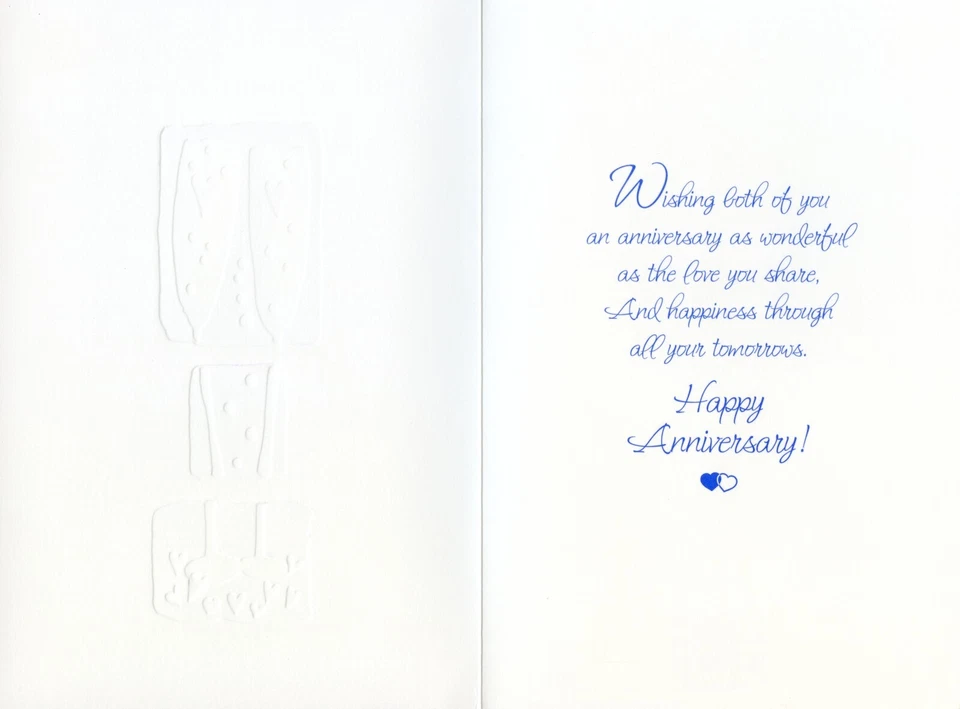 Wishing both of you
an anniversary as wonderful
as the love you share,
And happiness through
all your tomorrows.
Happy
Anniversary!